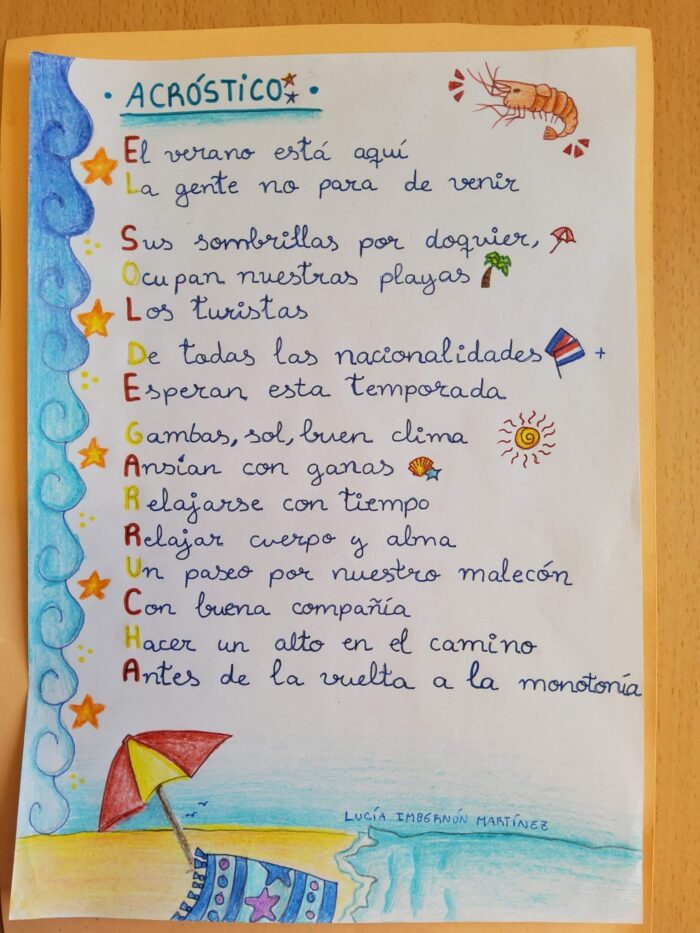 · ACRÓSTICO ·
El verano está aquí
La gente no para de venir
Sus sombrillas por doquier,
Ocupan nuestras playas
Los turistas
De todas las nacionalidades +
Esperan esta temporada
Gambas, sol, buen clima
Ansían con ganas
Relajarse con tiempo
Relajar cuerpo y alma
Un paseo por nuestro malecón
Con buena compañía
Hacer un alto en el camino
Antes de la vuelta a la monotonía
LUCÍA IMBERNÓN MARTÍNEZ